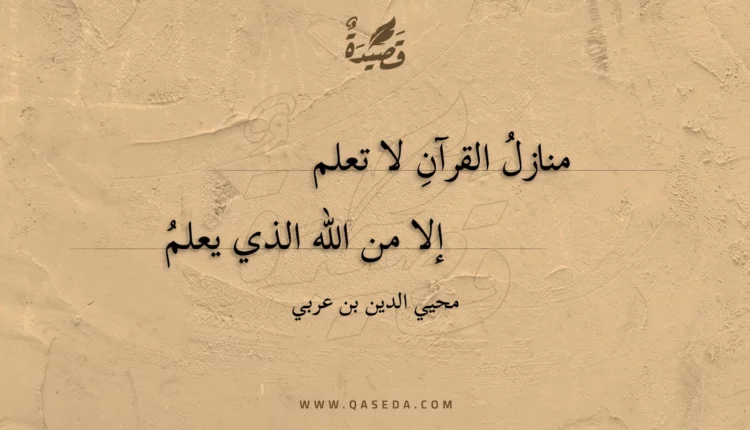 قَصِيدَةٌ
منازلُ القرآنِ لا تعلم
إلا من الله الذي يعلمُ
محيي الدين بن عربي
WWW.QASEDA.COM